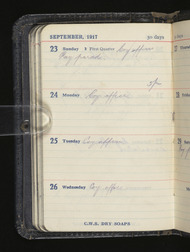 SEPTEMBER, 1917 30 days
23 Sunday First Quarter Coy office
Pay parade
24 Monday Coy office
25 Tuesday Coy office
26 Wednesday Coy office
C.W.S. DRY SOAPS